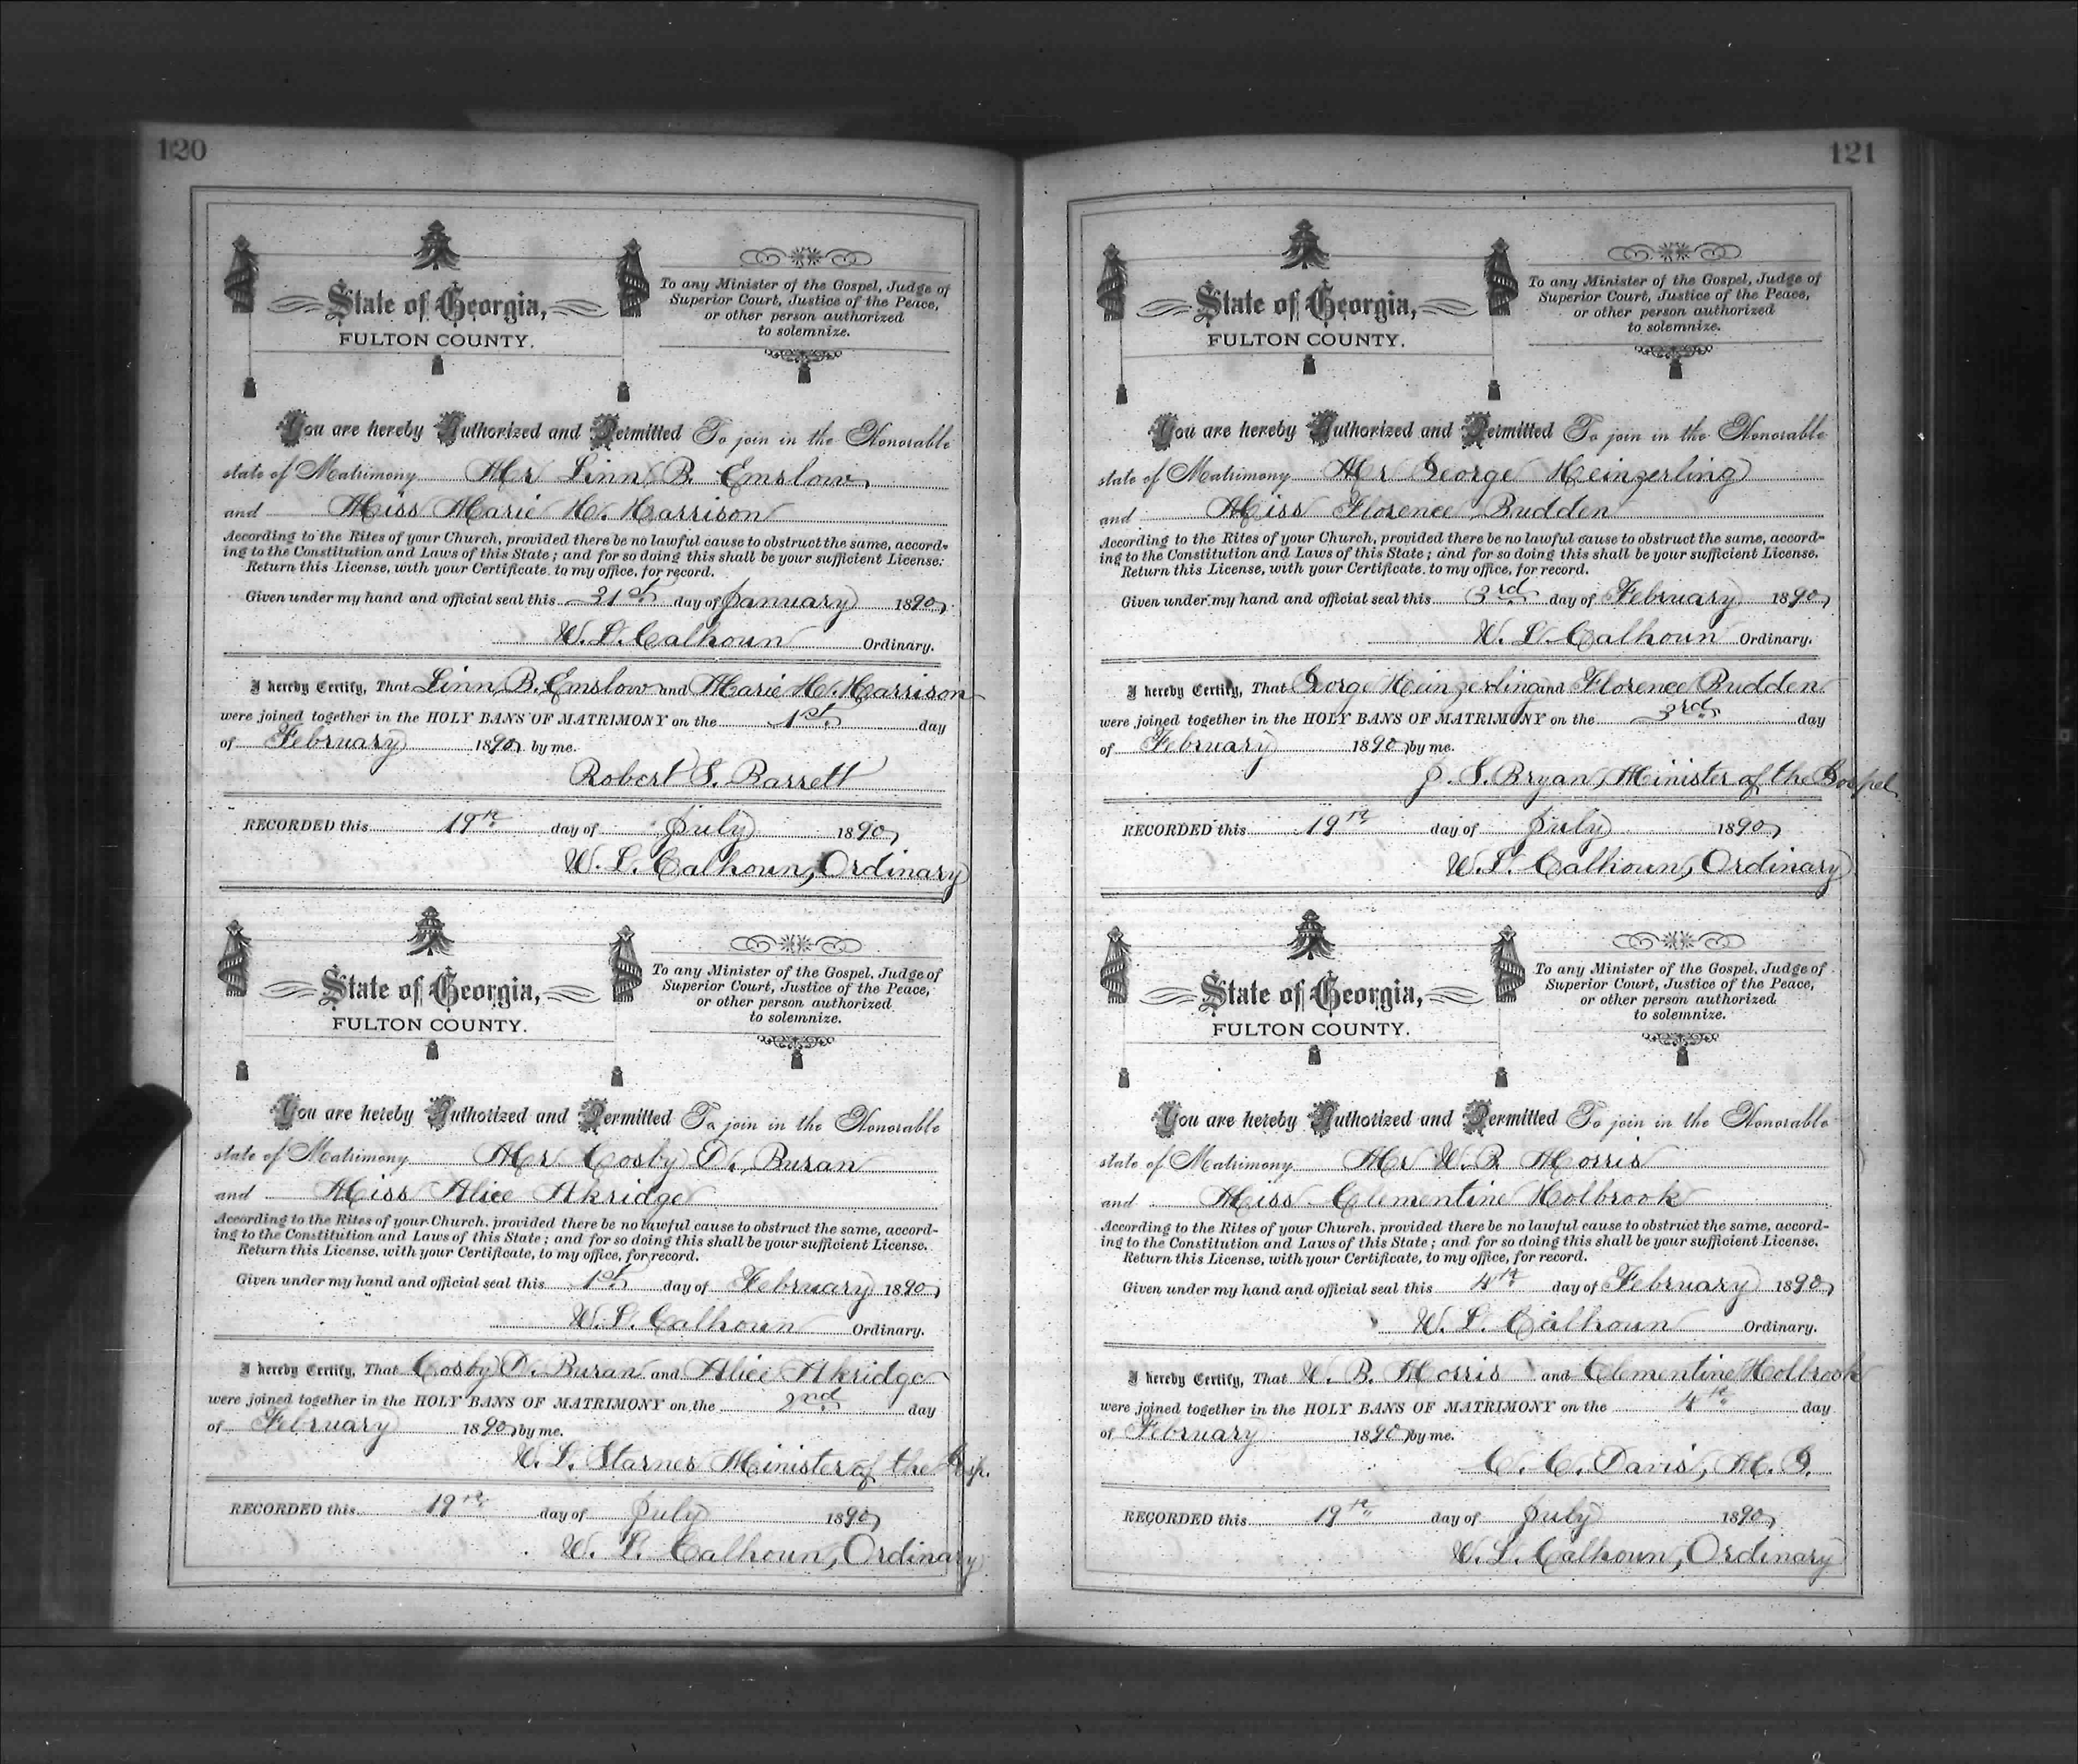 120
State of Georgia,
FULTON COUNTY.
To any Minister of the Gospel, Judge of
Superior Court, Justice of the Peace,
or other person authorized
to solemnize.
You are hereby Authorized and Permitted To join in the Honorable
state of Matrimony Mr Linn B. Emslow
and Miss Marie H. Harrison
According to the Rites of your Church, provided there be no lawful cause to obstruct the same, accord-
ing to the Constitution and Laws of this State; and for so doing this shall be your sufficient License.
Return this License, with your Certificate, to my office, for record.
Given under my hand and official seal this 31st day of January 1890
W. L. Calhoun Ordinary.
I hereby Certify, That Linn B. Emslow and Marie H. Harrison
were joined together in the HOLY BANS OF MATRIMONY on the 1st day
of February 1890 by me.
Robert S. Barrett
RECORDED this 19th day of July 1890
W. L. Calhoun, Ordinary
State of Georgia,
FULTON COUNTY.
To any Minister of the Gospel, Judge of
Superior Court, Justice of the Peace,
or other person authorized
to solemnize.
You are hereby Authorized and Permitted To join in the Honorable
state of Matrimony Mr Cosby D. Buran
and Miss Alice Akridge
According to the Rites of your Church, provided there be no lawful cause to obstruct the same, accord-
ing to the Constitution and Laws of this State; and for so doing this shall be your sufficient License.
Return this License, with your Certificate, to my office, for record.
Given under my hand and official seal this 1st day of February 1890
W. L. Calhoun Ordinary.
I hereby Certify, That Cosby D. Buran and Alice Akridge
were joined together in the HOLY BANS OF MATRIMONY on the 2nd day
of February 1890 by me.
W. L. Starnes Minister of the Gosp.
RECORDED this 19th day of July 1890
W. L. Calhoun, Ordinary
121
State of Georgia,
FULTON COUNTY.
To any Minister of the Gospel, Judge of
Superior Court, Justice of the Peace,
or other person authorized
to solemnize.
You are hereby Authorized and Permitted To join in the Honorable
state of Matrimony Mr George Heinzerling
and Miss Florence Budden
According to the Rites of your Church, provided there be no lawful cause to obstruct the same, accord-
ing to the Constitution and Laws of this State; and for so doing this shall be your sufficient License.
Return this License, with your Certificate, to my office, for record.
Given under my hand and official seal this 3rd day of February 1890
W. L. Calhoun Ordinary.
I hereby Certify, That Gorge Heinzerling and Florence Budden
were joined together in the HOLY BANS OF MATRIMONY on the 3rd day
of February 1890 by me.
J. S. Bryan, Minister of the Gospel
RECORDED this 19th day of July 1890
W. L. Calhoun, Ordinary
State of Georgia,
FULTON COUNTY.
To any Minister of the Gospel, Judge of
Superior Court, Justice of the Peace,
or other person authorized
to solemnize.
You are hereby Authorized and Permitted To join in the Honorable
state of Matrimony Mr W. B. Morris
and Miss Clementine Holbrook
According to the Rites of your Church, provided there be no lawful cause to obstruct the same, accord-
ing to the Constitution and Laws of this State; and for so doing this shall be your sufficient License.
Return this License, with your Certificate, to my office, for record.
Given under my hand and official seal this 4th day of February 1890
W. L. Calhoun Ordinary.
I hereby Certify, That W. B. Morris and Clementine Holbrook
were joined together in the HOLY BANS OF MATRIMONY on the 4th day
of February 1890 by me.
C. C. Davis, M. G.
RECORDED this 19th day of July 1890
W. L. Calhoun, Ordinary